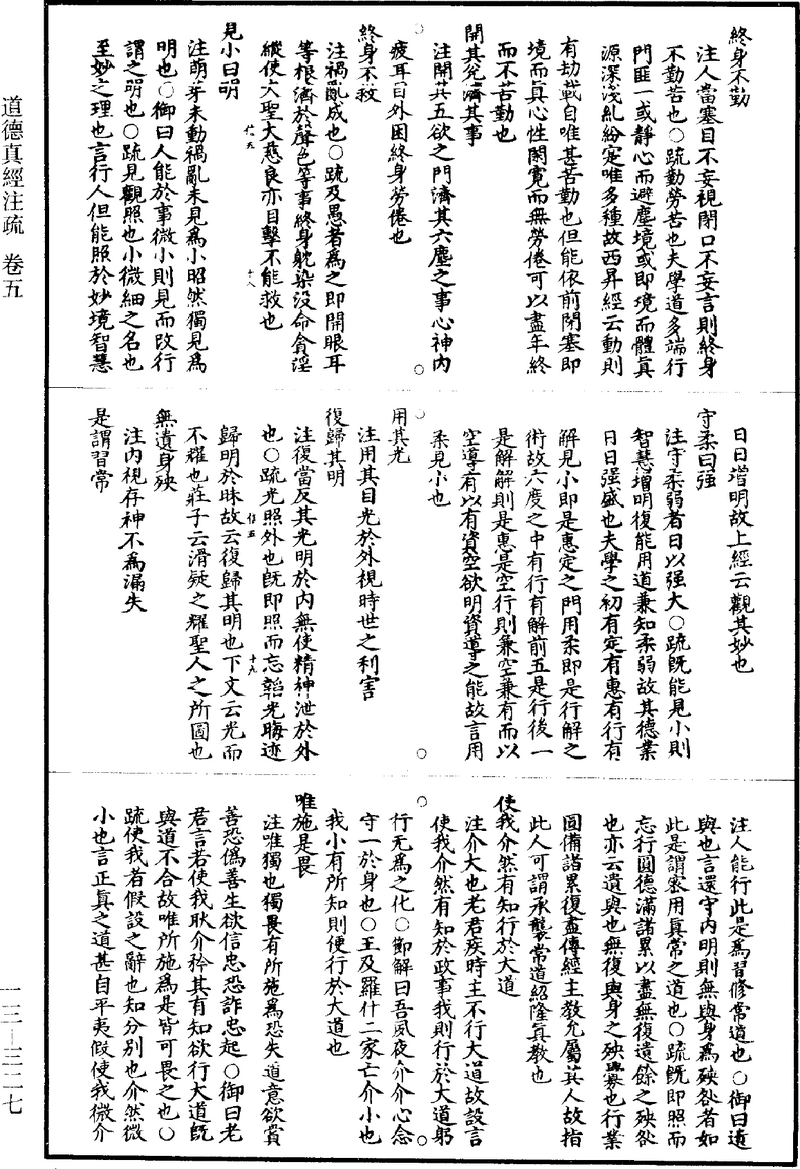 終身不勤
注人當塞目不妄視閉口不妄言則終身
不勤苦也○疏勤勞苦也夫學道多端行
門匪一或靜心而避塵境或即境而體真
源深淺糺紛定唯多種故西昇經云動則
有劫載自唯甚苦勤也但能依前閉塞即
境而真心性閑寬而無勞倦可以盡年終
而不苦勤也
開其兌濟其事
注開其五欲之門濟其六塵之事心神內
疲耳目外困終身勞倦也
終身不救
注禍亂成也○疏及愚者為之即開眼耳
等根濟於聲色等事終身躭染沒命貪淫
縱使大聖大慈良亦目擊不能救也
見小曰明
注萌芽未動禍亂未見為小昭然獨見為
明也○御曰人能於事微小則見而改行
謂之明也○疏見觀照也小微細之名也
至妙之理也言行人但能照於妙境智慧
日日增明故上經云觀其妙也
守柔曰強
注守柔弱者日以強大○疏既能見小則
智慧增明復能用道兼知柔弱故其德業
日日强盛也夫學之初有定有惠有行有
解見小即是惠定之門用柔即是行解之
術故六度之中有行有解前五是行後一
是解解則是惠是空行則兼空兼有而以
空導有以有資空欲明資導之能故言用
柔見小也
用其光
注用其目光於外視時世之利害
復歸其明
注復當反其光明於內無使精神泄於外
也○疏光照外也既即照而忘韜光晦迹
歸明於昧故云復歸其明也下文云光而
不耀也莊子云滑疑之耀聖人之所圖也
無遺身殃
注內視存神不為漏失
是謂習常
注人能行此是為習修常道也○御曰遺
與也言還守內明則無與身為殃咎者如
此是謂密用真常之道也○疏既即照而
忘行圓德滿諸累以盡無復遺餘之殃咎
也亦云遺與也無復與身之殃釁也行業
圓備諸累復盡傳經主教允屬其人故指
此人可謂承襲常道紹隆真教也
使我介然有知行於大道
注介大也老君疾時主不行大道故設言
使我介然有知於政事我則行於大道躬
行无為之化○節解曰吾夙夜介介心念
守一於身也○王及羅什二家云介小也
我小有所知則便行於大道也
唯施是畏
注唯獨也獨畏有所施為恐失道意欲賞
善恐偽善生欲信忠恐詐忠起○御曰老
君言若使我耿介矜其有知欲行大道既
與道不合故唯所施為是皆可畏之也○
疏使我者假設之辭也知分別也介然微
小也言正真之道甚自平夷假使我微介
道德真經注疏 卷五
一三—三二七